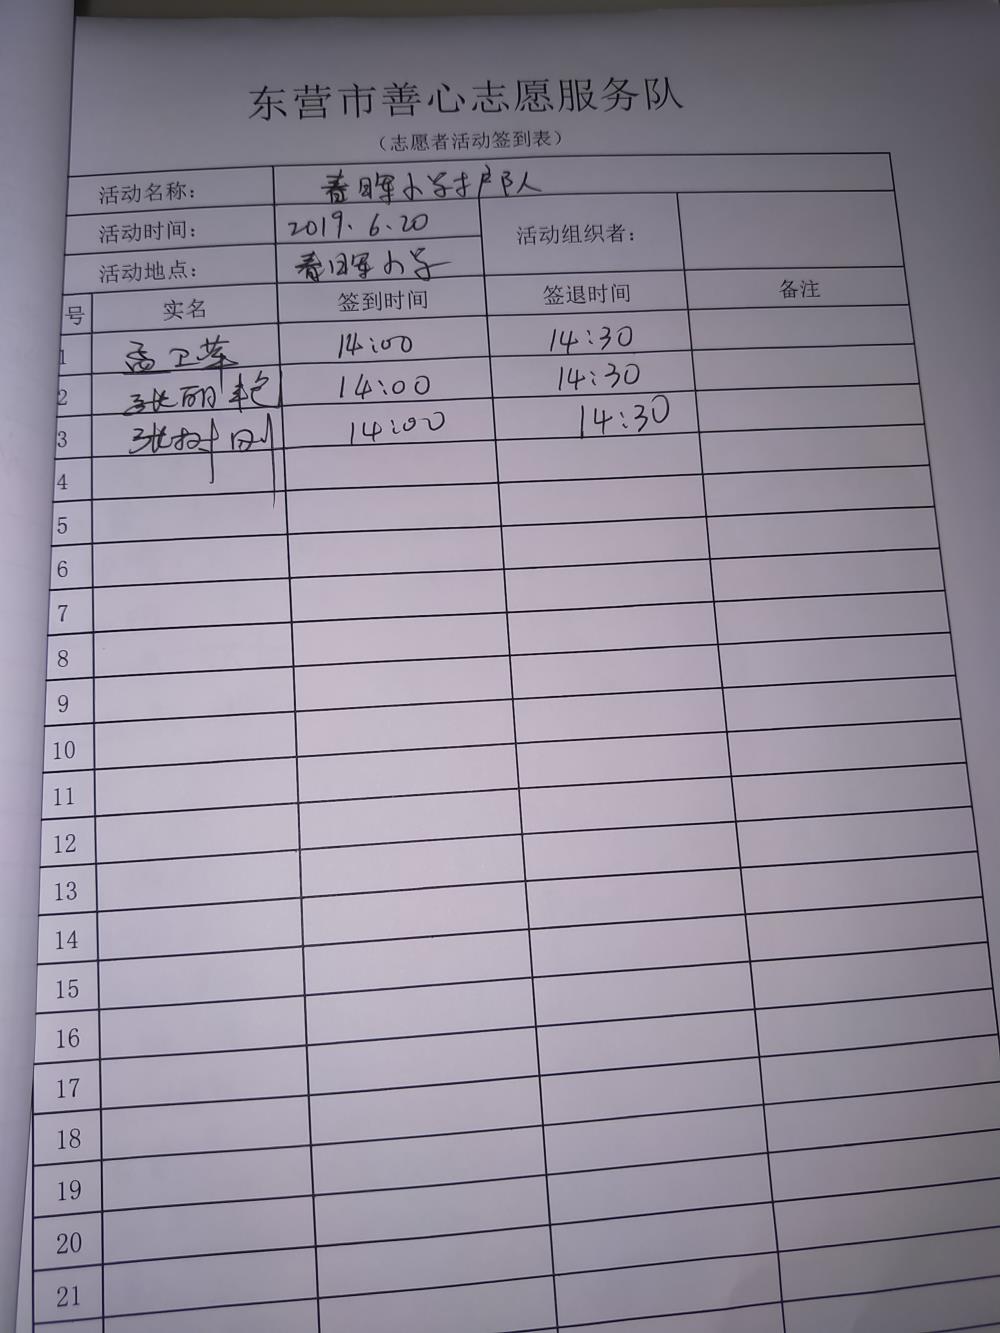 东营市善心志愿服务队
（志愿者活动签到表）
活动名称： 春晖小学护队
活动时间： 2019.6.20 活动组织者：
活动地点： 春晖小学
号 实名 签到时间 签退时间 备注
1 孟卫华 14:00 14:30
2 张丽艳 14:00 14:30
3 张树刚 14:00 14:30
4
5
6
7
8
9
10
11
12
13
14
15
16
17
18
19
20
21